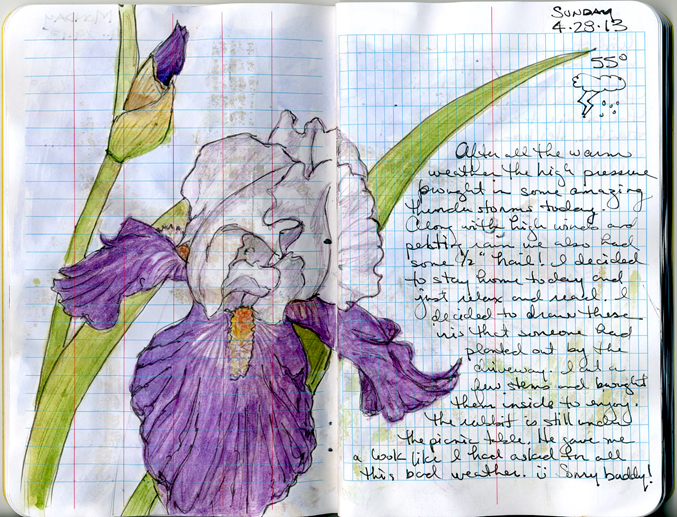 SUNDAY
4·28·13
55°
After all the warm
weather the high pressure
brought in some amazing
thunder storms today.
Along with high winds and
pelting rain we also had
some 1/2" hail! I decided
to stay home today and
just relax and read. I
decided to draw these
iris that someone had
planted out by the
driveway. I cut a
few stems and brought
them inside to enjoy.
The rabbit is still under
the picnic table. He gave me
a look like I had asked for all
this bad weather. Sorry buddy!